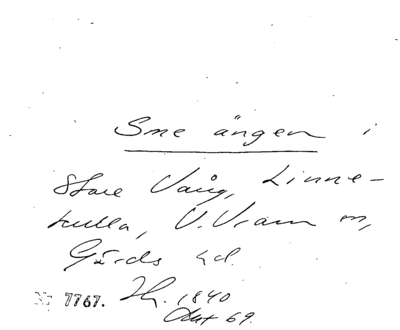 Sme ängen i
Store Vång, Linne-
kulla, V. Vram sn,
Gärds hd.
Nr 7767. Hh. 1840
Akt 69.